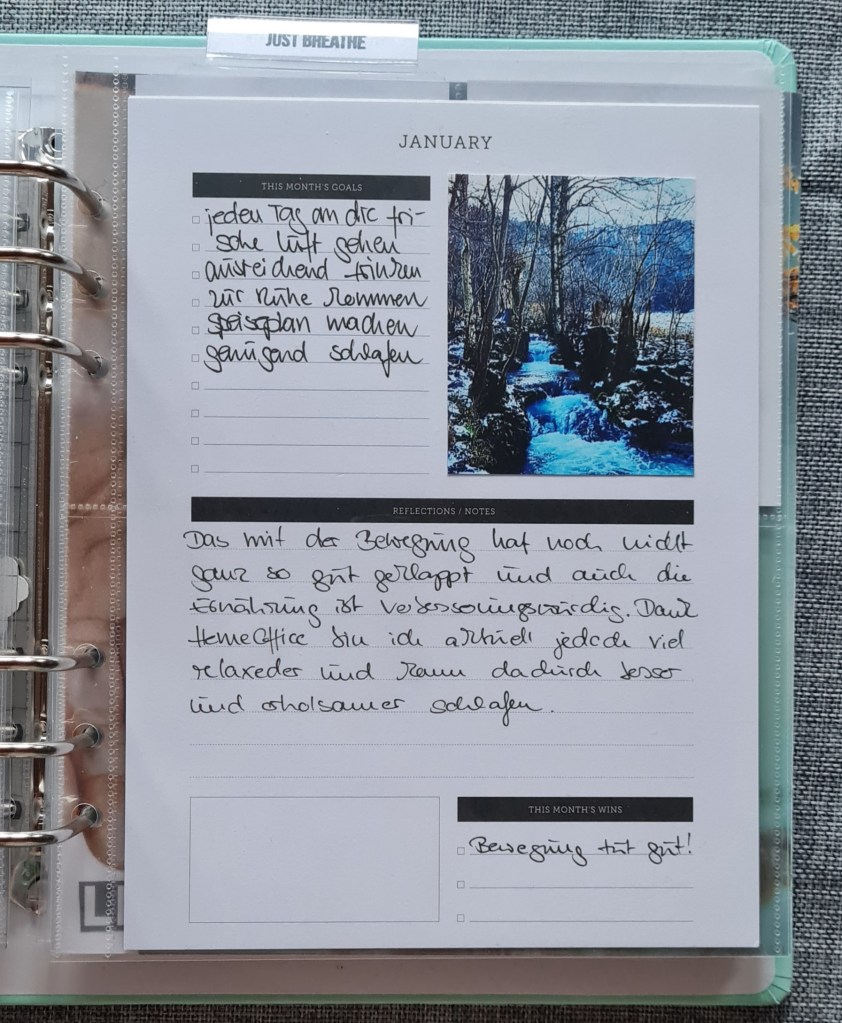 JUST BREATHE
JANUARY
THIS MONTH'S GOALS
jeden Tag an die fri-
sche Luft gehen
ausreichend trinken
zur Ruhe kommen
Speiseplan machen
genügend schlafen
REFLECTIONS / NOTES
Das mit der Bewegung hat noch nicht
ganz so gut geklappt und auch die
Ernährung ist verbesserungswürdig. Dank
HomeOffice bin ich aktuell jedoch viel
relaxeder und kann dadurch besser
und erholsamer schlafen.
THIS MONTH'S WINS
Bewegung tut gut!